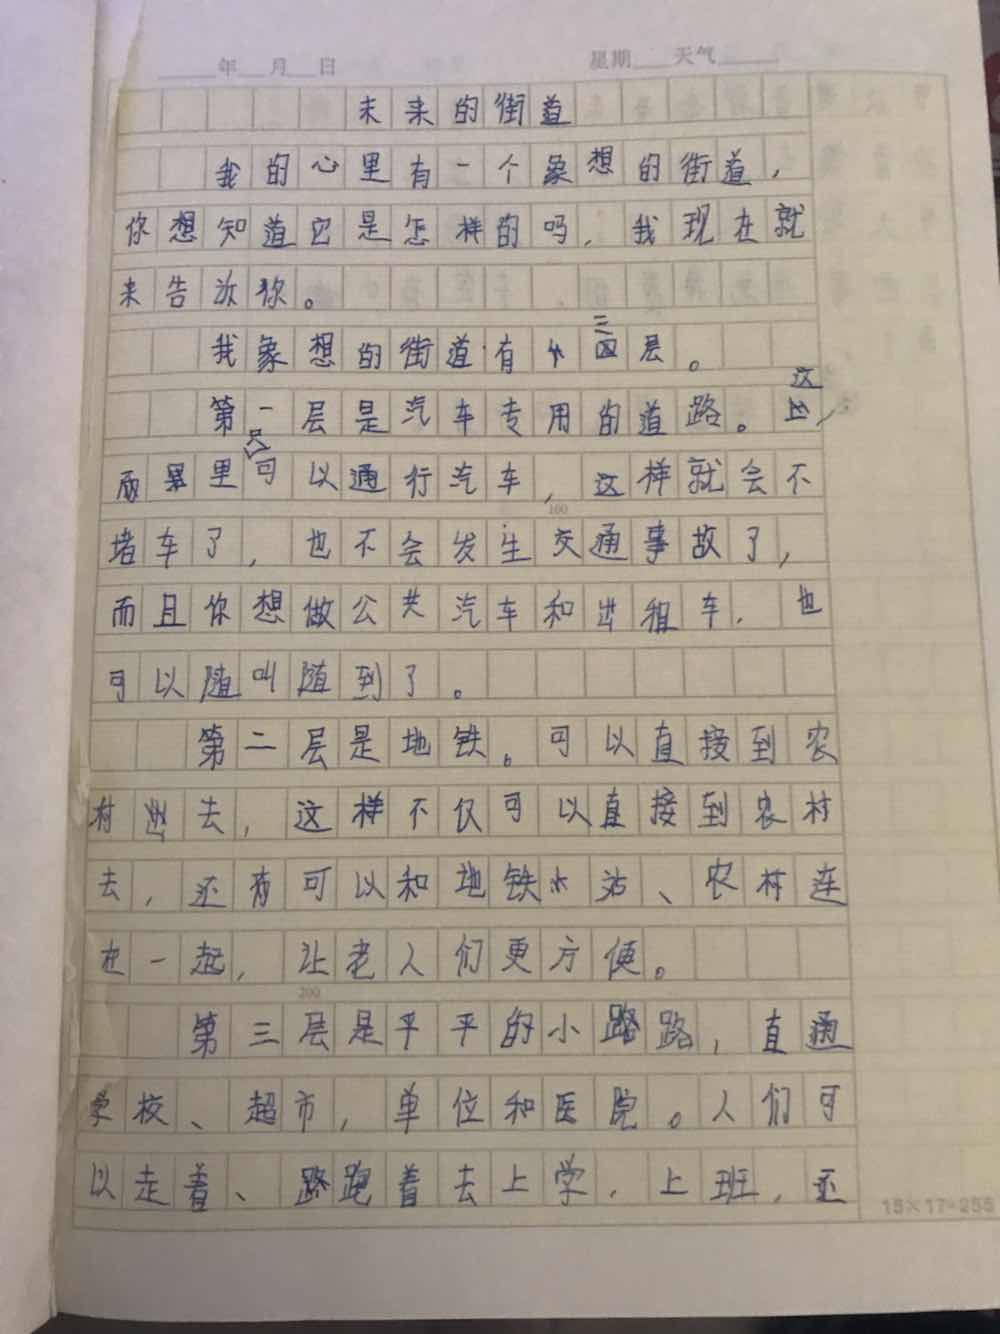 年 月 日 星期 天气
未来的街道
我的心里有一个象想的街道，
你想知道它是怎样的吗，我现在就
来告汝你。
我象想的街道有三层。
第一层是汽车专用的道路。这
里只可以通行汽车，这样就会不
堵车了，也不会发生交通事故了，
100
而且你想做公共汽车和出租车，也
可以随叫随到了。
第二层是地铁。可以直接到农
村去，这样不仅可以直接到农村
去，还有可以和地铁站、农村连
在一起，让老人们更方便。
200
第三层是平平的小路，直通
学校、超市，单位和医院。人们可
以走着、跑着去上学，上班，还
15×17=255